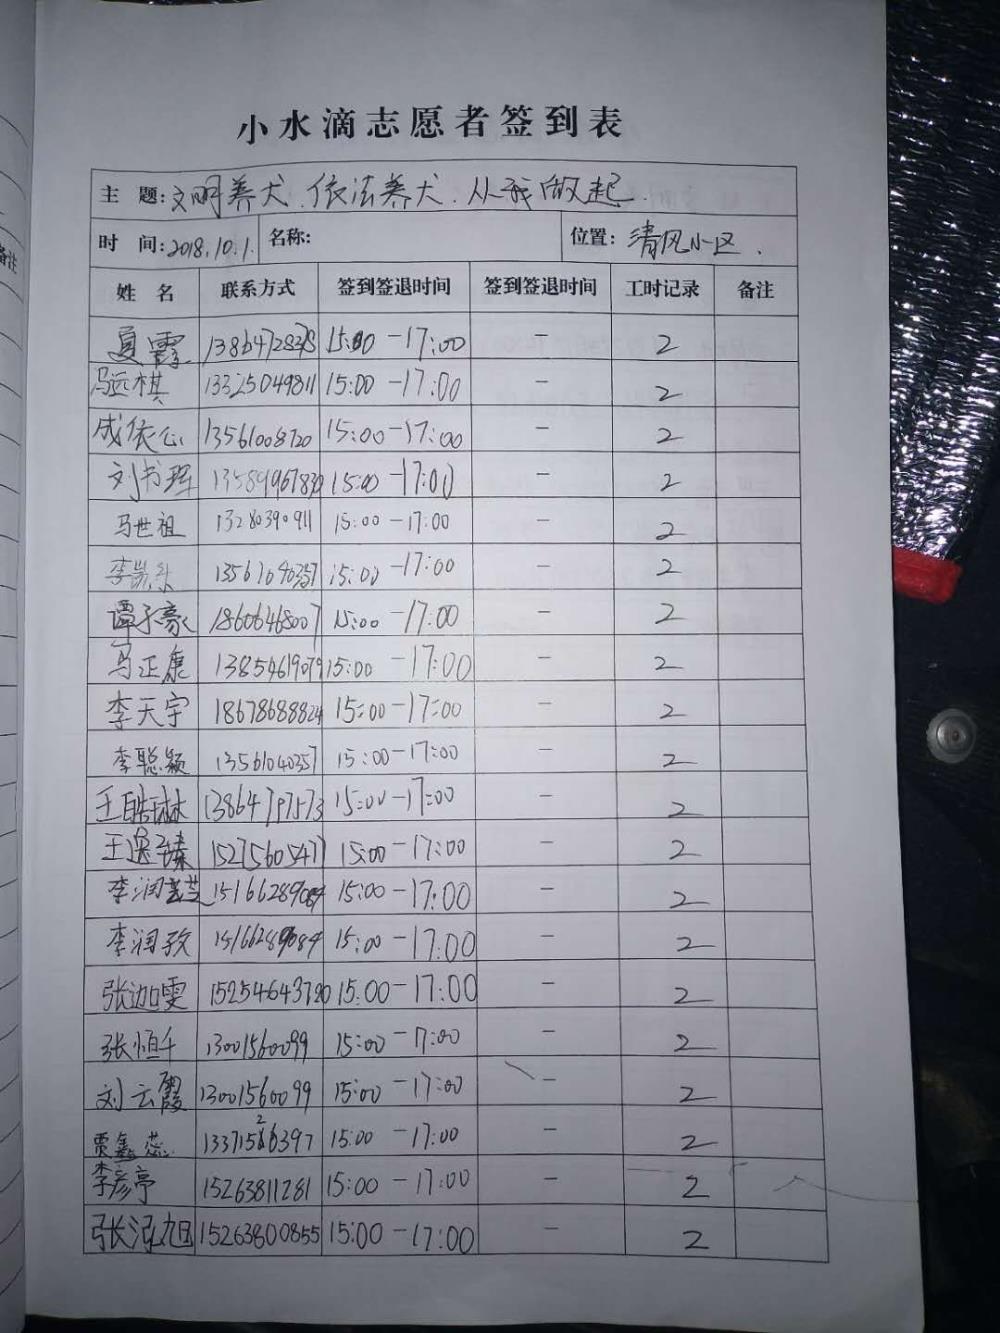 小水滴志愿者签到表
主 题: 文明养犬、依法养犬、从我做起.
时 间: 2018.10.1. 名称: 位置: 清风小区.
姓 名 联系方式 签到签退时间 签到签退时间 工时记录 备注
夏霏 15:00-17:00 - 2
冯远棋 13325049811 15:00-17:00 - 2
成依心 13561008720 15:00-17:00 - 2
刘书珲 15:00-17:00 - 2
马世祖 13280390911 15:00-17:00 - 2
15:00-17:00 - 2
谭子豪 18606468007 15:00-17:00 - 2
马正康 13854619079 15:00-17:00 - 2
李天宇 18678688824 15:00-17:00 - 2
李聪颖 13561040357 15:00-17:00 - 2
王皓琳 15:00-17:00 - 2
王逸臻 15275605477 15:00-17:00 - 2
李润芝 15166289084 15:00-17:00 - 2
李润孜 15166289084 15:00-17:00 - 2
张迦雯 15254643720 15:00-17:00 - 2
张恒千 13001560099 15:00-17:00 - 2
刘云霞 13001560099 15:00-17:00 - 2
贾鑫蕊 15:00-17:00 - 2
李彦亭 15263811281 15:00-17:00 - 2
张泓旭 15263800855 15:00-17:00 - 2